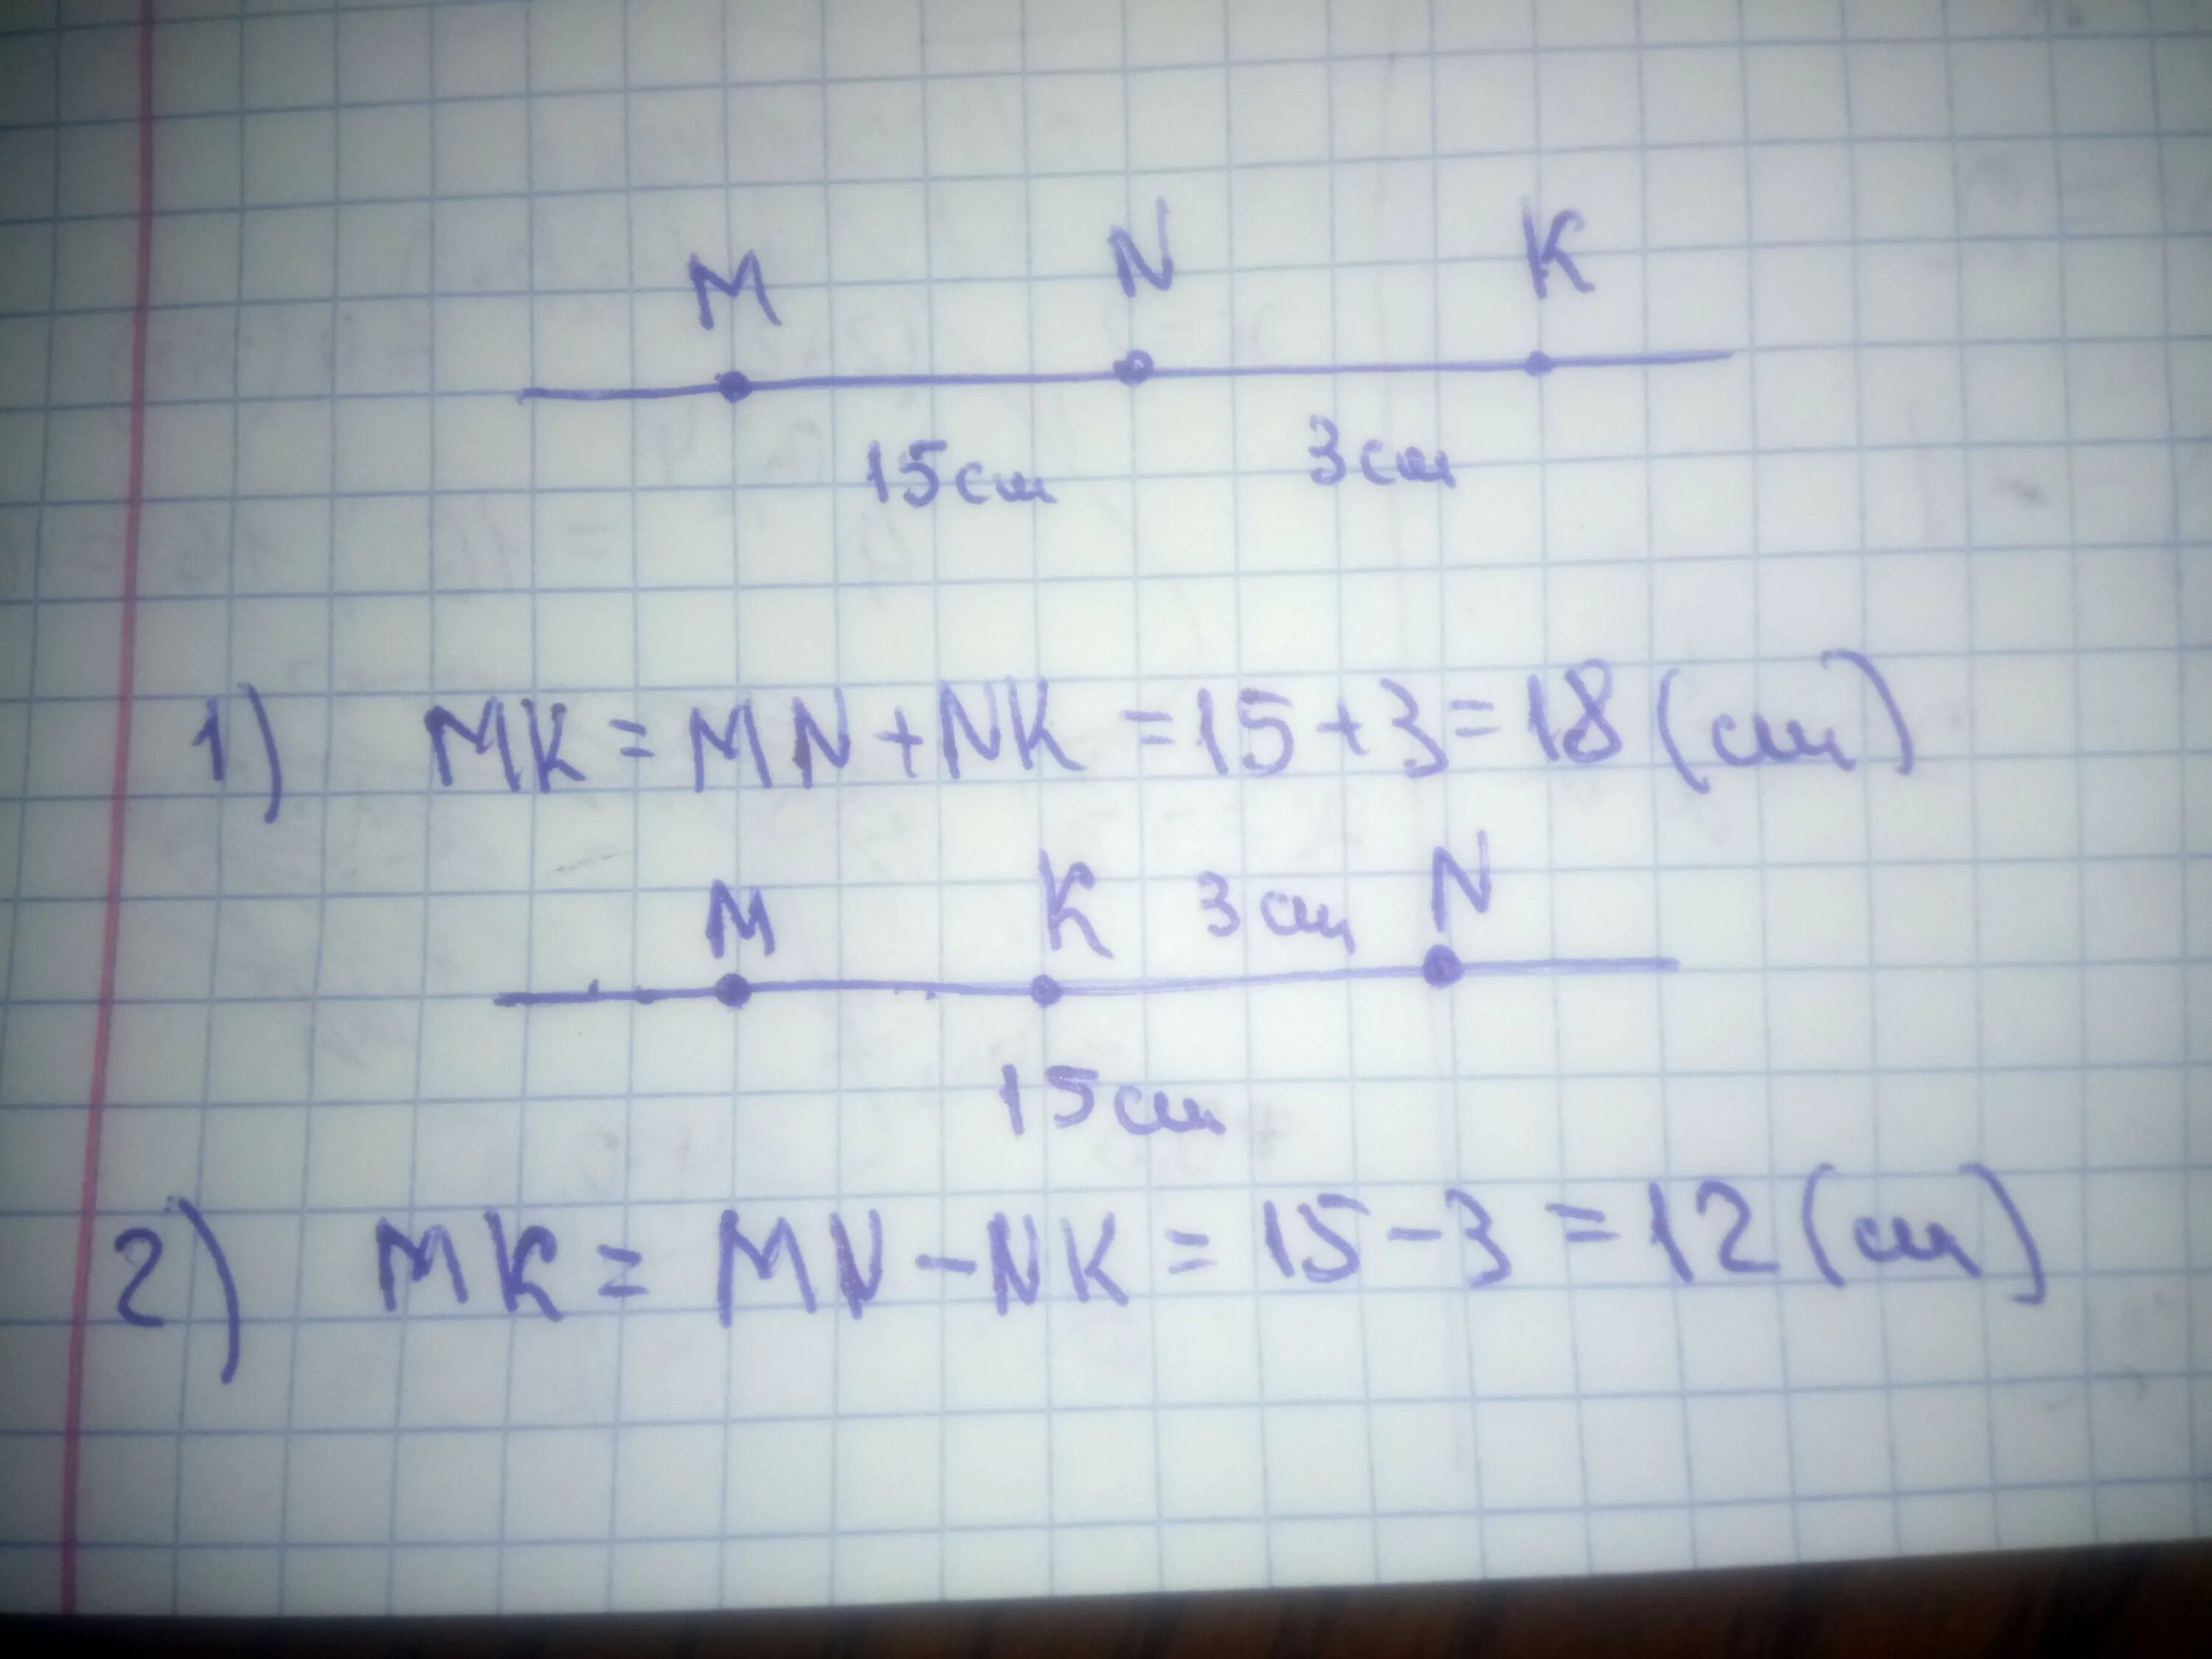 M N K
15см 3см
1) MK = MN + NK = 15 + 3 = 18 (см)
M K 3см N
15см
2) MK = MN - NK = 15 - 3 = 12 (см)